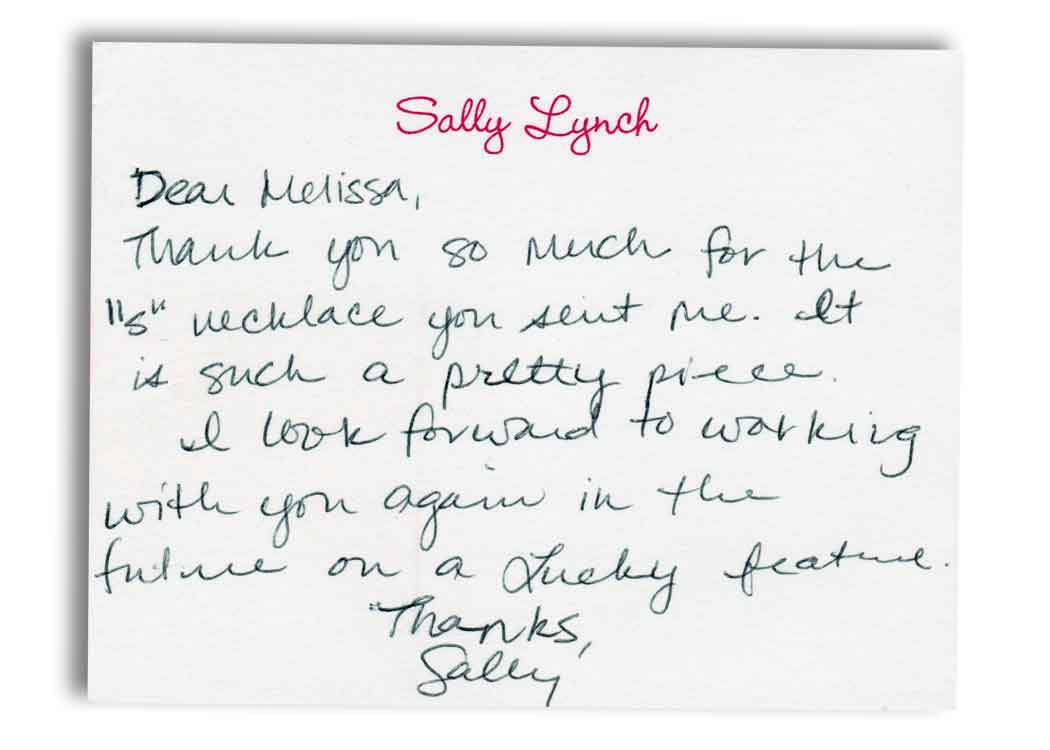 Sally Lynch
Dear Melissa,
Thank you so much for the
"S" necklace you sent me. It
is such a pretty piece.
I look forward to working
with you again in the
future on a Lucky feature.
Thanks,
Sally